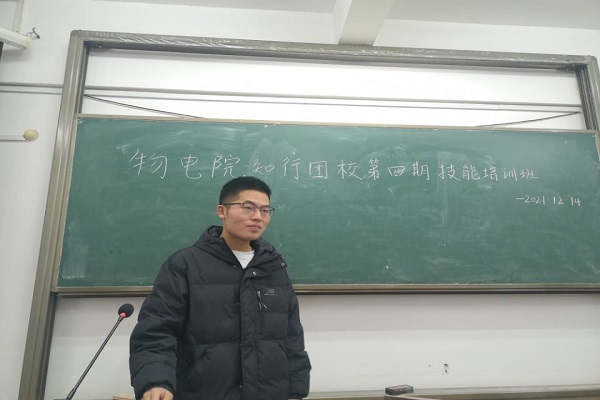 物电院知行团校第四期技能培训班
-2021.12.14